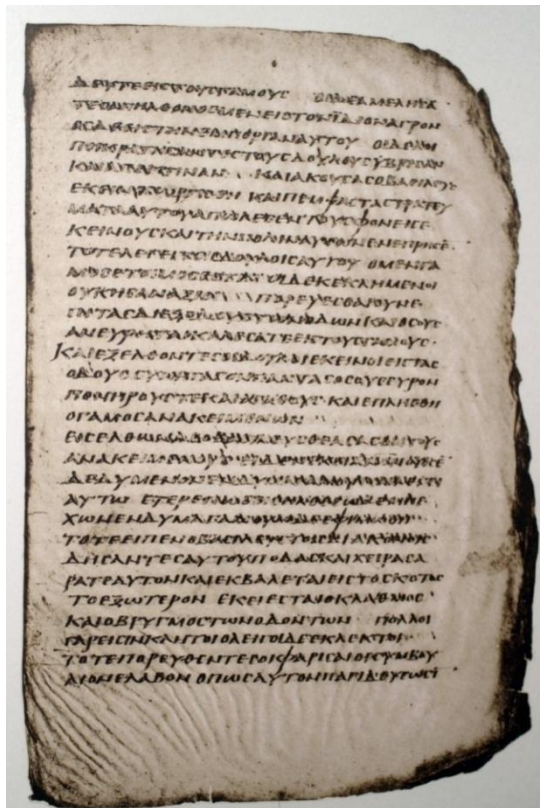 ΔΕΥΤΕ ΕΙϹ ΤΟΥϹ ΓΑΜΟΥϹ ΟΙ ΔΕ ΑΜΕΛΗϹΑ
ΤΕϹ ΑΠΗΛΘΟΝ Ο ΜΕΝ ΕΙϹ ΤΟΝ ΪΔΙΟΝ ΑΓΡΟΝ
ΑΥΤΟΥ ΟΙ ΔΕ ΛΟΙ
ΠΟΙ ΤΟΥϹ ΔΟΥΛΟΥϹ ΥΒΡΙϹΑΝ
ΚΑΙ ΚΑΙ ΑΚΟΥϹΑϹ Ο ΒΑϹΙΛΕΥϹ
ΕΚΕΙΝΟϹ ΩΡΓΙϹΘΗ ΚΑΙ ΠΕΜΨΑϹ ΤΑ ϹΤΡΑΤΕΥ
ΜΑΤΑ ΑΥΤΟΥ ΑΠΩΛΕϹΕΝ ΤΟΥϹ ΦΟΝΕΙϹ Ε
ΚΕΙΝΟΥϹ ΚΑΙ ΤΗΝ ΠΟΛΙΝ ΑΥΤΩΝ ΕΝΕΠΡΗϹΕ
ΤΟΤΕ ΛΕΓΕΙ ΤΟΙϹ ΔΟΥΛΟΙϹ ΑΥΤΟΥ Ο ΜΕΝ ΓΑ
ΜΟϹ ΕΤΟΙΜΟϹ ΟΙ ΔΕ ΚΕΚΛΗΜΕΝΟΙ
ΟΥΚ ΗϹΑΝ ΑΞΙΟΙ ΠΟΡΕΥΕϹΘΑΙ ΟΥΝ Ε
ΠΙ ΤΑϹ ΔΙΕΞΟΔΟΥϹ ΤΩΝ ΟΔΩΝ ΚΑΙ ΟϹΟΥϹ
ΑΝ ΕΥΡΗΤΑΙ ΚΑΛΕϹΑΤΕ ΕΙϹ ΤΟΥϹ ΓΑΜΟΥϹ
ΚΑΙ ΕΞΕΛΘΟΝΤΕϹ ΟΙ ΔΟΥΛΟΙ ΕΚΕΙΝΟΙ ΕΙϹ ΤΑϹ
ΟΔΟΥϹ ϹΥΝΗΓΑΓΟΝ ΠΑΝΤΑϹ ΟϹΟΥϹ ΕΥΡΟΝ
ΠΟΝΗΡΟΥϹ ΤΕ ΚΑΙ ΑΓΑΘΟΥϹ ΚΑΙ ΕΠΛΗϹΘΗ
Ο ΓΑΜΟϹ ΑΝΑΚΕΙΜΕΝΩΝ
ΕΙϹΕΛΘΩΝ ΔΕ Ο ΒΑϹΙΛΕΥϹ ΘΕΑϹΑϹΘΑΙ ΤΟΥϹ
ΑΝΑΚΕΙΜΕΝΟΥϹ
ΔΕΔΥΜΕΝΟΝ ΕΝΔΥΜΑ ΓΑΜΟΥ
ΑΥΤΩ ΕΤΕΡΕ ΩΔΕ ΜΗ Ε
ΧΩΝ ΕΝΔΥΜΑ ΓΑΜΟΥ Ο ΔΕ ΕΦΙΜΩΘΗ
ΤΟΤΕ ΕΙΠΕΝ Ο ΒΑϹΙΛΕΥϹ ΤΟΙϹ ΔΙΑΚΟΝΟΙϹ
ΔΗϹΑΝΤΕϹ ΑΥΤΟΥ ΠΟΔΑϹ ΚΑΙ ΧΕΙΡΑϹ Α
ΡΑΤΕ ΑΥΤΟΝ ΚΑΙ ΕΚΒΑΛΕΤΑΙ ΕΙϹ ΤΟ ϹΚΟΤΟϹ
ΤΟ ΕΞΩΤΕΡΟΝ ΕΚΕΙ ΕϹΤΑΙ Ο ΚΛΑΥΘΜΟϹ
ΚΑΙ Ο ΒΡΥΓΜΟϹ ΤΩΝ ΟΔΟΝΤΩΝ ΠΟΛΛΟΙ
ΓΑΡ ΕΙϹΙΝ ΚΛΗΤΟΙ ΟΛΙΓΟΙ ΔΕ ΕΚΛΕΚΤΟΙ
ΤΟΤΕ ΠΟΡΕΥΘΕΝΤΕϹ ΟΙ ΦΑΡΙϹΑΙΟΙ ϹΥΜΒΟΥ
ΛΙΟΝ ΕΛΑΒΟΝ ΟΠΩϹ ΑΥΤΟΝ ΠΑΓΙΔΕΥϹΩϹΙ